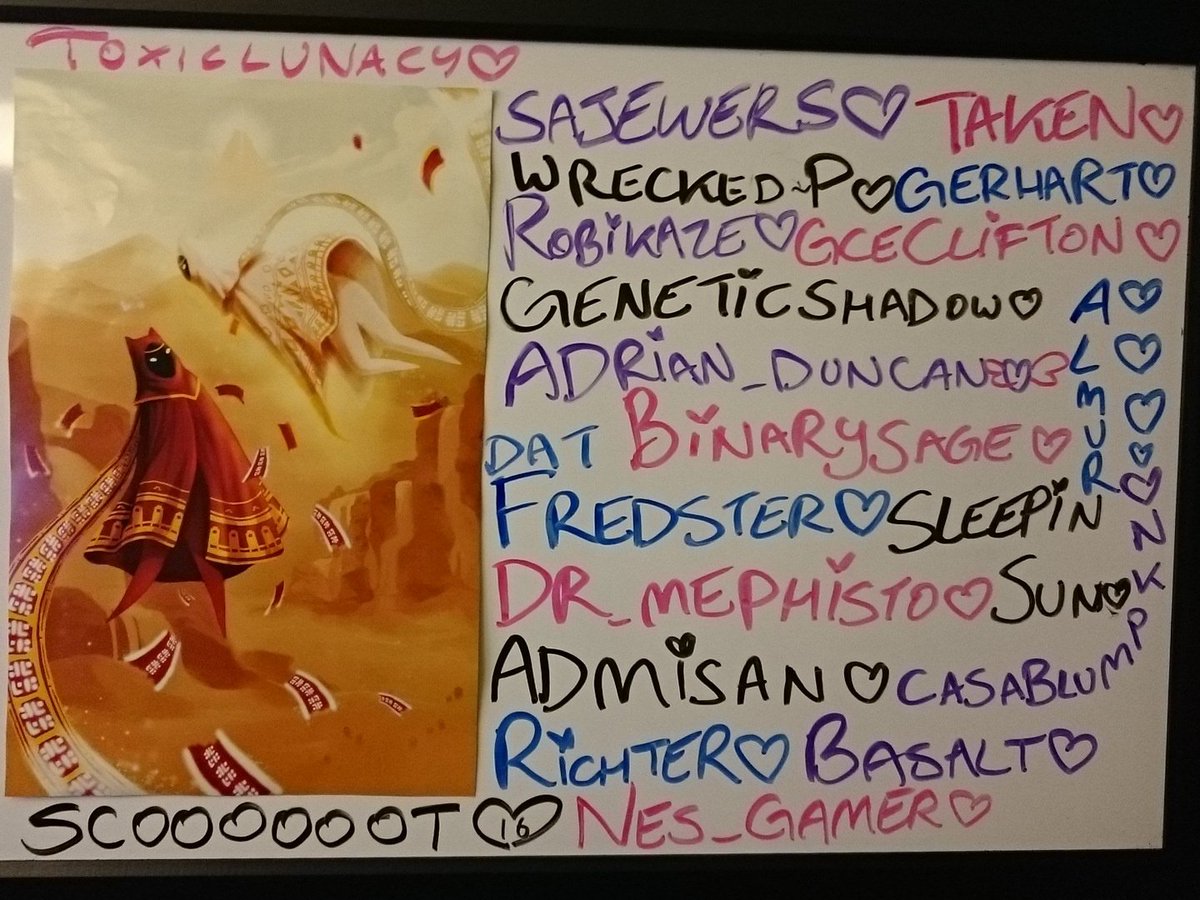 TOXICLUNACY♡
SAJEWERS♡ TAKEN♡
WRECKED~P♡ GERHART♡
ROBIKAZE♡ GCECLIFTON♡
GENETICSHADOW♡
ALMUR♡♡♡♡
ADRIAN_DUNCAN♡
DAT BINARYSAGE♡
FREDSTER♡ SLEEPIN
DR_MEPHISTO♡ SUN♡
ADMISAN♡ CASABLUMPKNZ♡
RICHTER♡ BASALT♡
SCOOOOOOT♡16 NES_GAMER♡